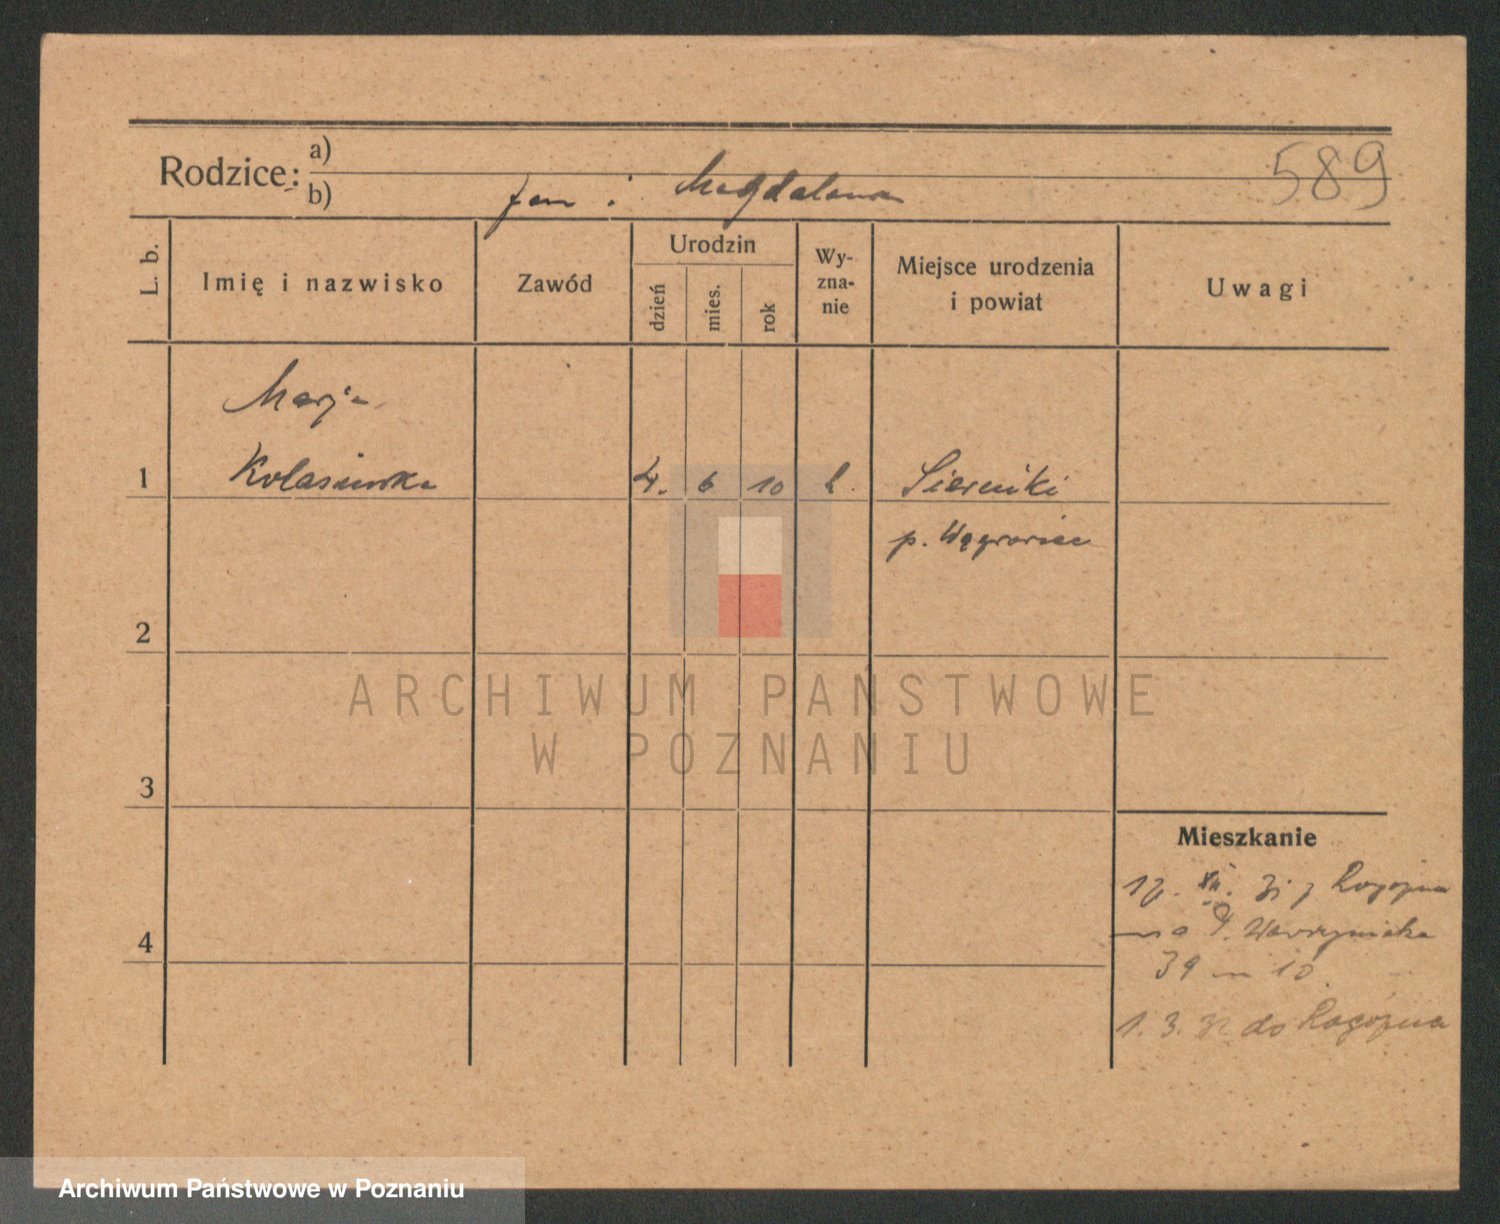 589
Rodzice:
a)
b) Jan i Magdalena
L. b.
Imię i nazwisko
Zawód
Urodzin
dzień
mies.
rok
Wy-
zna-
nie
Miejsce urodzenia
i powiat
Uwagi
Marja
1 Kolasińska 4. 6 10 Sierniki
p. Wągrowiec
2
3
4
Mieszkanie
17. XII. 31 z Rogoźna
na Wawrzyniaka
39 m 10
1. 3. 32 do Rogoźna
ARCHIWUM PAŃSTWOWE
W POZNANIU
Archiwum Państwowe w Poznaniu